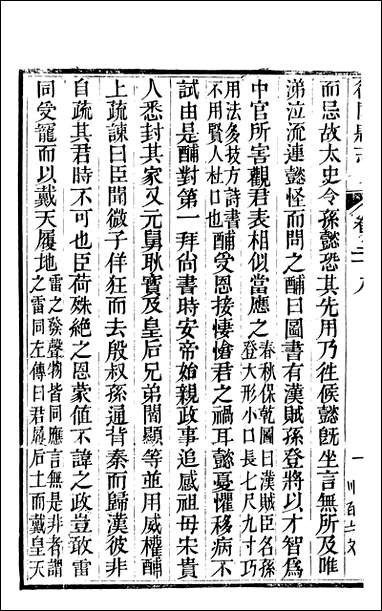 而忌故太史令孫懿恐其先用乃徃候懿旣坐言無所及唯
涕泣流連懿怪而問之酺曰圖書有漢賊孫登將以才智爲
中官所害觀君表相似當應之春秋保乾圖曰漢賊臣名孫
登大形小口長七尺九寸巧
用法多技方詩書
不用賢人杜口也酺受恩接悽愴君之禍耳懿憂懼移病不
試由是酺對第一拜尚書時安帝始親政事追感祖母宋貴
人悉封其家又元舅耿寶及皇后兄弟閻顯等並用威權酺
上疏諫曰臣聞微子佯狂而去殷叔孫通背秦而歸漢彼非
自疏其君時不可也臣荷殊絶之恩蒙値不諱之政豈敢雷
同受寵而以戴天履地雷之發聲物皆同應言無是非者謂
之雷同左傳曰君履后土而戴皇天